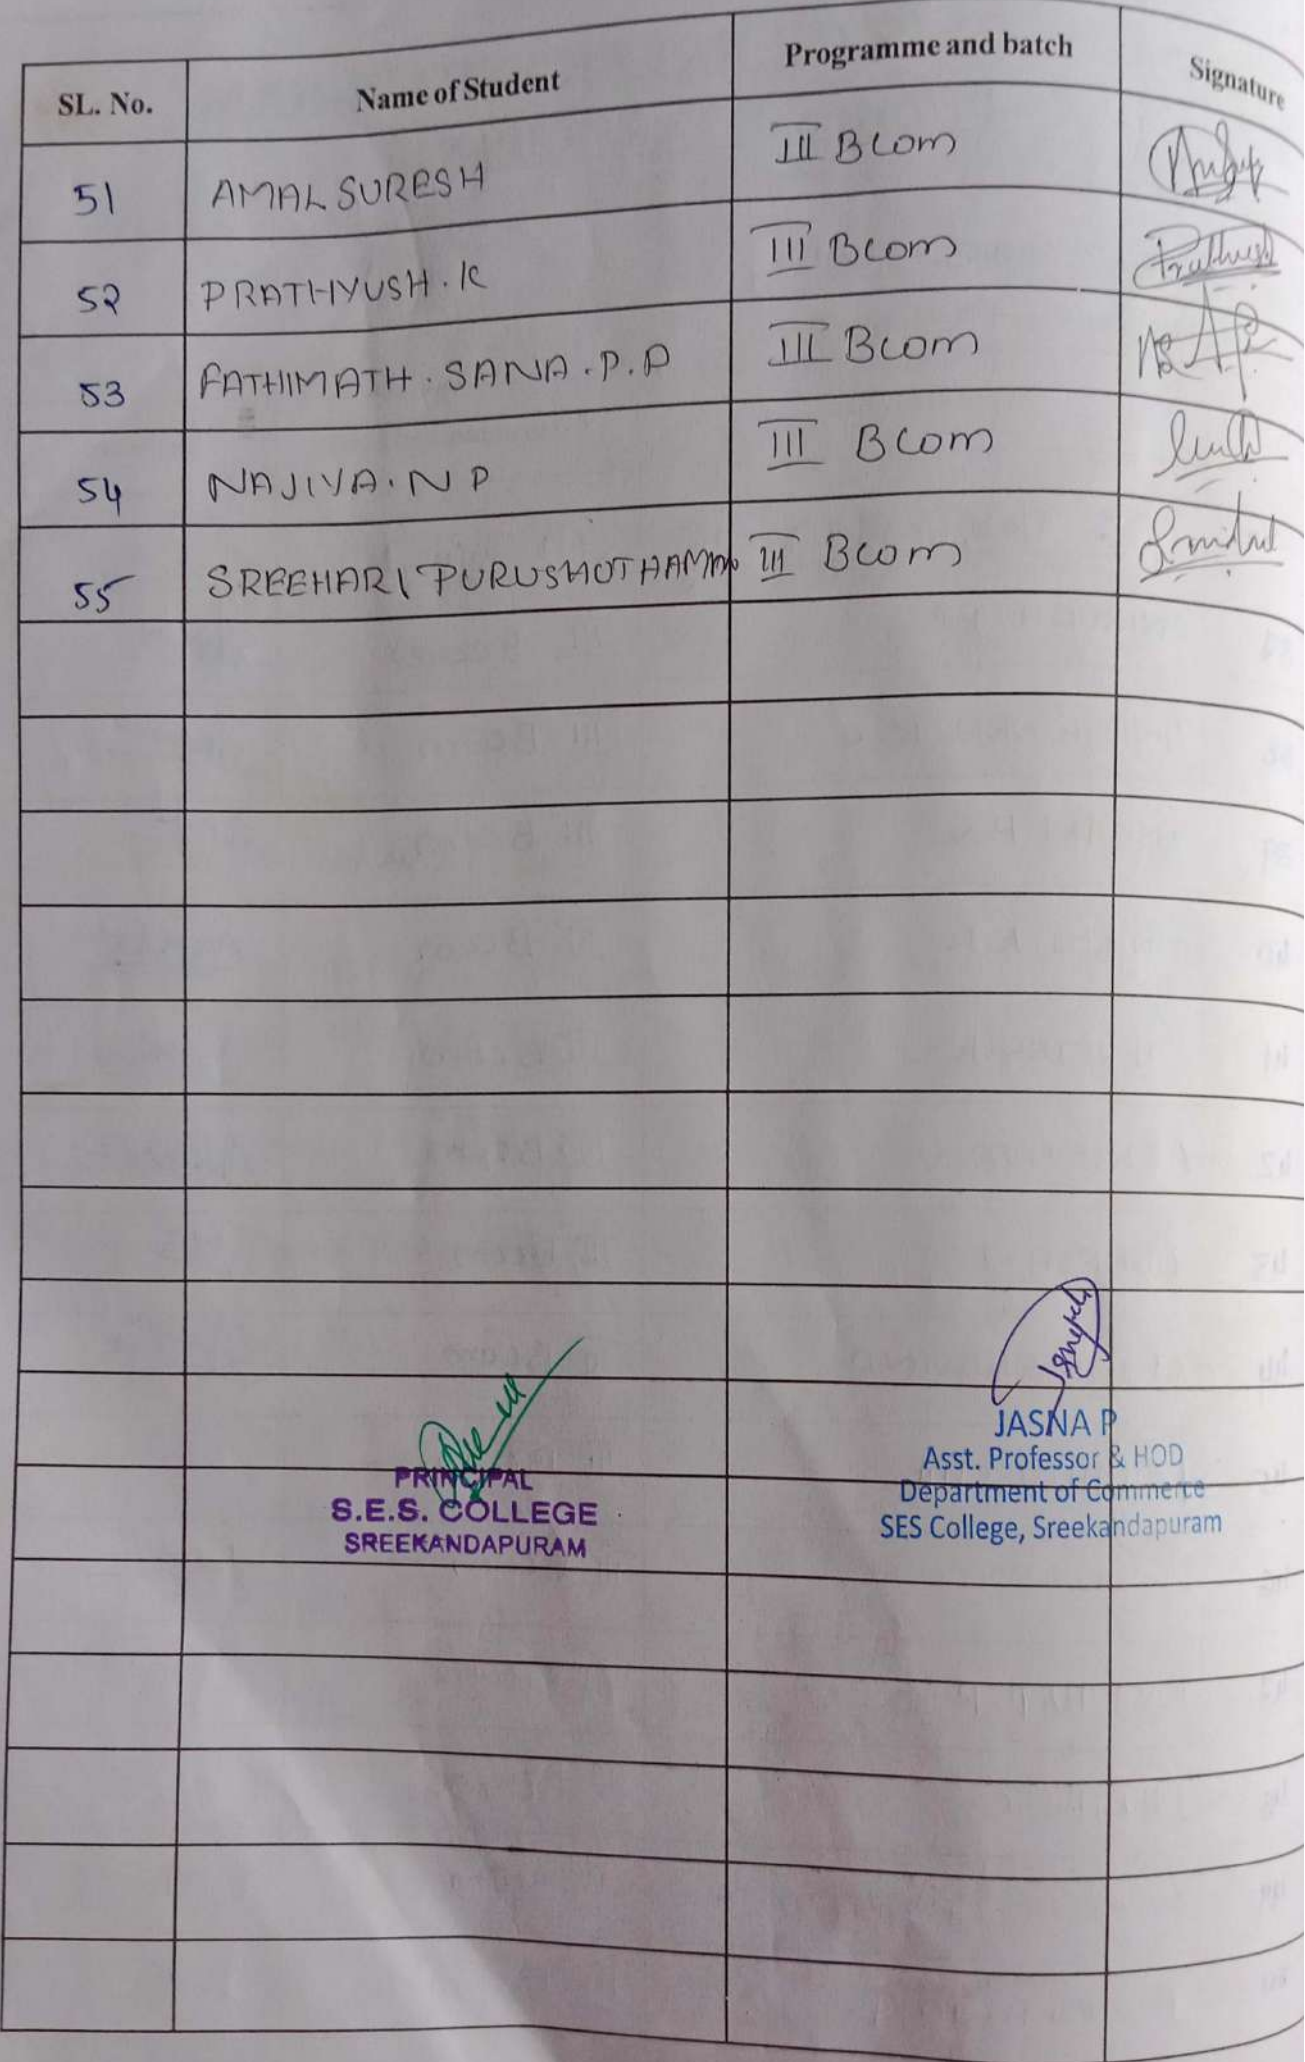 SL. No. Name of Student Programme and batch Signature
51 AMAL SURESH III BCom
52 PRATHYUSH . K III BCom
53 FATHIMATH . SANA . P . P III BCom
54 NAJIYA . N P III BCom
55 SREEHARI PURUSHOTHAMAN III BCom
PRINCIPAL
S.E.S. COLLEGE
SREEKANDAPURAM
JASNA P
Asst. Professor & HOD
Department of Commerce
SES College, Sreekandapuram